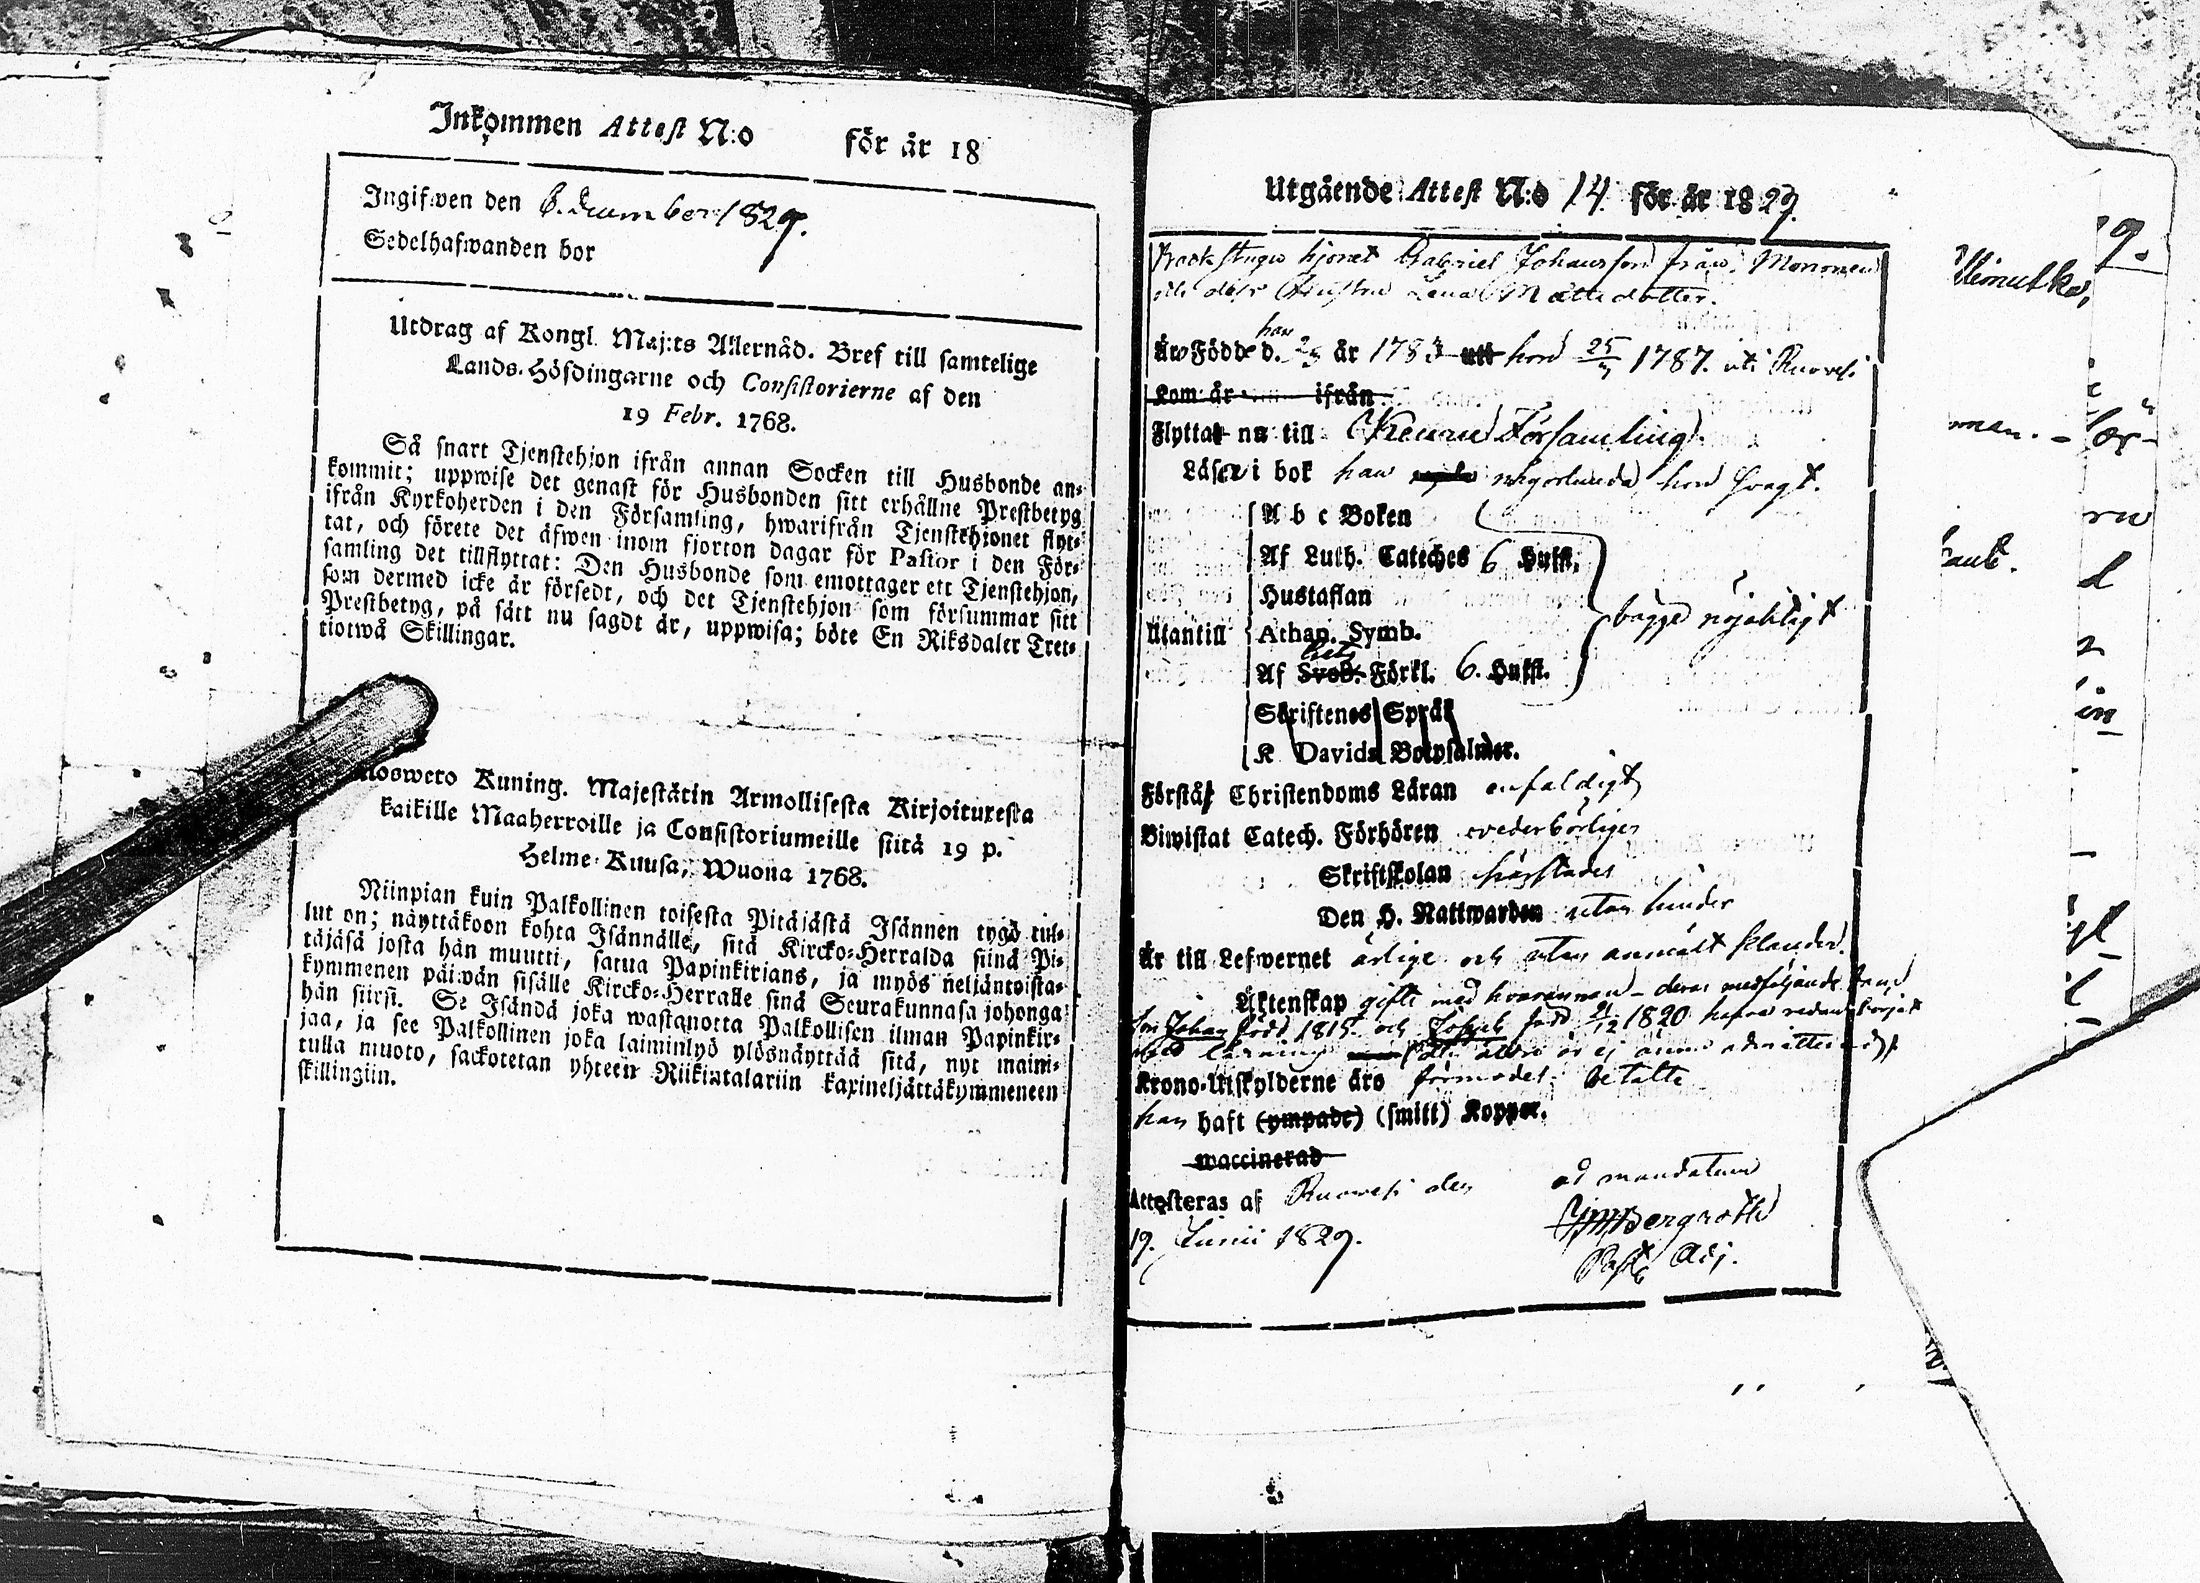 Inkommen Attest N:o för år 18
Ingifwen den 6. December 1829.
Sedelhafwanden bor
Utdrag af Kongl. Maj:ts Allernåd. Bref till samtelige
Lands-Höfdingarne och Consistorierne af den
19 Febr. 1768.
Så snart Tjenstehjon ifrån annan Socken till Husbonde an-
kommit; uppwise det genast för Husbonden sitt erhållne Prestbetyg
ifrån Kyrkoherden i den Församling, hwarifrån Tjenstehjonet flyt-
tat, och förete det äfwen inom fjorton dagar för Pastor i den För-
samling det tillflyttat: Den Husbonde som emottager ett Tjenstehjon,
som dermed icke är försedt, och det Tjenstehjon som försummar sitt
Prestbetyg, på sätt nu sagdt är, uppwisa; böte En Riksdaler Tret-
tiotwå Skillingar.
Uloswero Kuning. Majestätin Armollisesta Kirjoituxesta
kaikille Maaherroille ja Consistoriumeille siitä 19 p.
Helme-Kuusa, Wuona 1768.
Niinpian kuin Palkollinen toisesta Pitäjästä Isännen tygö tul-
lut on; näyttäkoon kohta Isännälle, sitä Kircko-Herralda siinä Pi-
täjäsä josta hän muutti, satua Papinkirjans, ja myös neljäntoista-
kymmenen päiwän sisälle Kircko-Herralle sinä Seurakunnasa johonga
hän siirsi. Se Isändä joka wastanotta Palkollisen ilman Papinkir-
jaa, ja see Palkollinen joka laiminlyö ylösnäyttää sitä, nyt maini-
tulla muoto, sackotetan yhteen Riikintalariin kaxineljättäkymmeneen
skillingiin.
Utgående Attest N:o 14. för år 1829.
Backstugu hjonet Gabriel Johansson från Mononen
och dess Hustru Lena Mattsdotter.
han
Äro Födde d. 2/3 år 1783 utt hon 25/ 1787. uti Ruovesi
Kom år ifrån
Flyttat nu till Keuru Församling.
Läser i bok han någorlunda, hon svagt.
A b c Boken
Af Luth. Cateches 6 Hufst.
Hustaflan
Utantill Athan. Symb. bägge nöjaktigt
Af Sveb. Förkl. 6. Hufst.
Skriftenes Språk
K Davids Botpsalmer.
Förstår Christendoms Läran enfaldigt
Biwistat Catech. Förhören vederbörligen
Skriftskolan härstädes
Den H. Nattwarden utan hinder
Är till Lefwernet ärlige och utan anmält klander.
Äktenskap gifte med hvarannan – deras medföljande
Johan född 1815. och Joseph född 21/12 1820 hafva redan börjat
Krono-Utskylderne äro förmodel. betalte
han haft (ympade) (smitt) Koppor.
waccinerad
Attesteras af Ruovesi den ad mandatum
19. Junii 1829. Bergroth
Past. Adj.